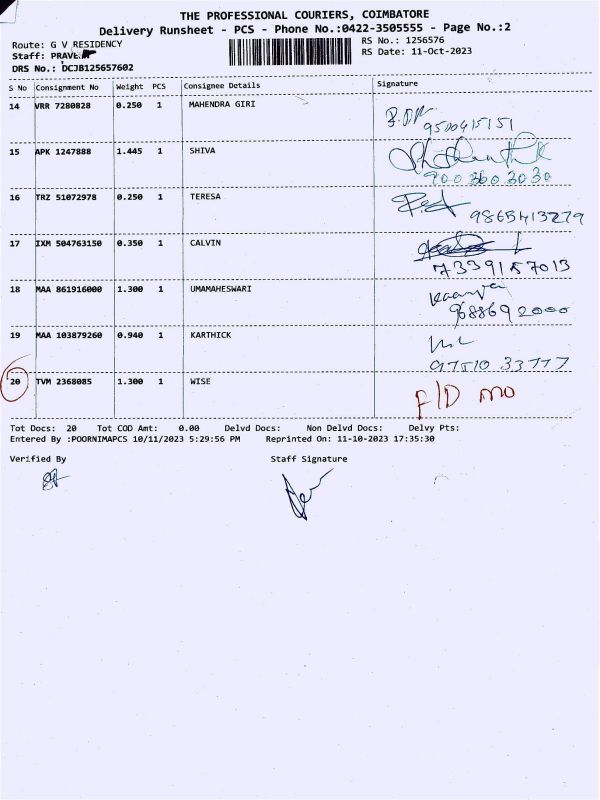 THE PROFESSIONAL COURIERS, COIMBATORE
Delivery Runsheet - PCS - Phone No.:0422-3505555 - Page No.:2
Route: G V RESIDENCY
RS No.: 1256576
Staff: PRAVE
RS Date: 11-Oct-2023
DRS No.: DCJB125657602
S No Consignment No Weight PCS Consignee Details Signature
14 VRR 7280828 0.250 1 MAHENDRA GIRI
9500415151
15 APK 1247888 1.445 1 SHIVA
900 360 3030
16 TRZ 51072978 0.250 1 TERESA
9865413279
17 IXM 504763150 0.350 1 CALVIN
7339157013
18 MAA 861916000 1.300 1 UMAMAHESWARI
9688692000
19 MAA 103879260 0.940 1 KARTHICK
97510 33777
20 TVM 2368085 1.300 1 WISE
F/D MO
Tot Docs: 20 Tot COD Amt: 0.00 Delvd Docs: Non Delvd Docs: Delvy Pts:
Entered By :POORNIMAPCS 10/11/2023 5:29:56 PM Reprinted On: 11-10-2023 17:35:30
Verified By Staff Signature